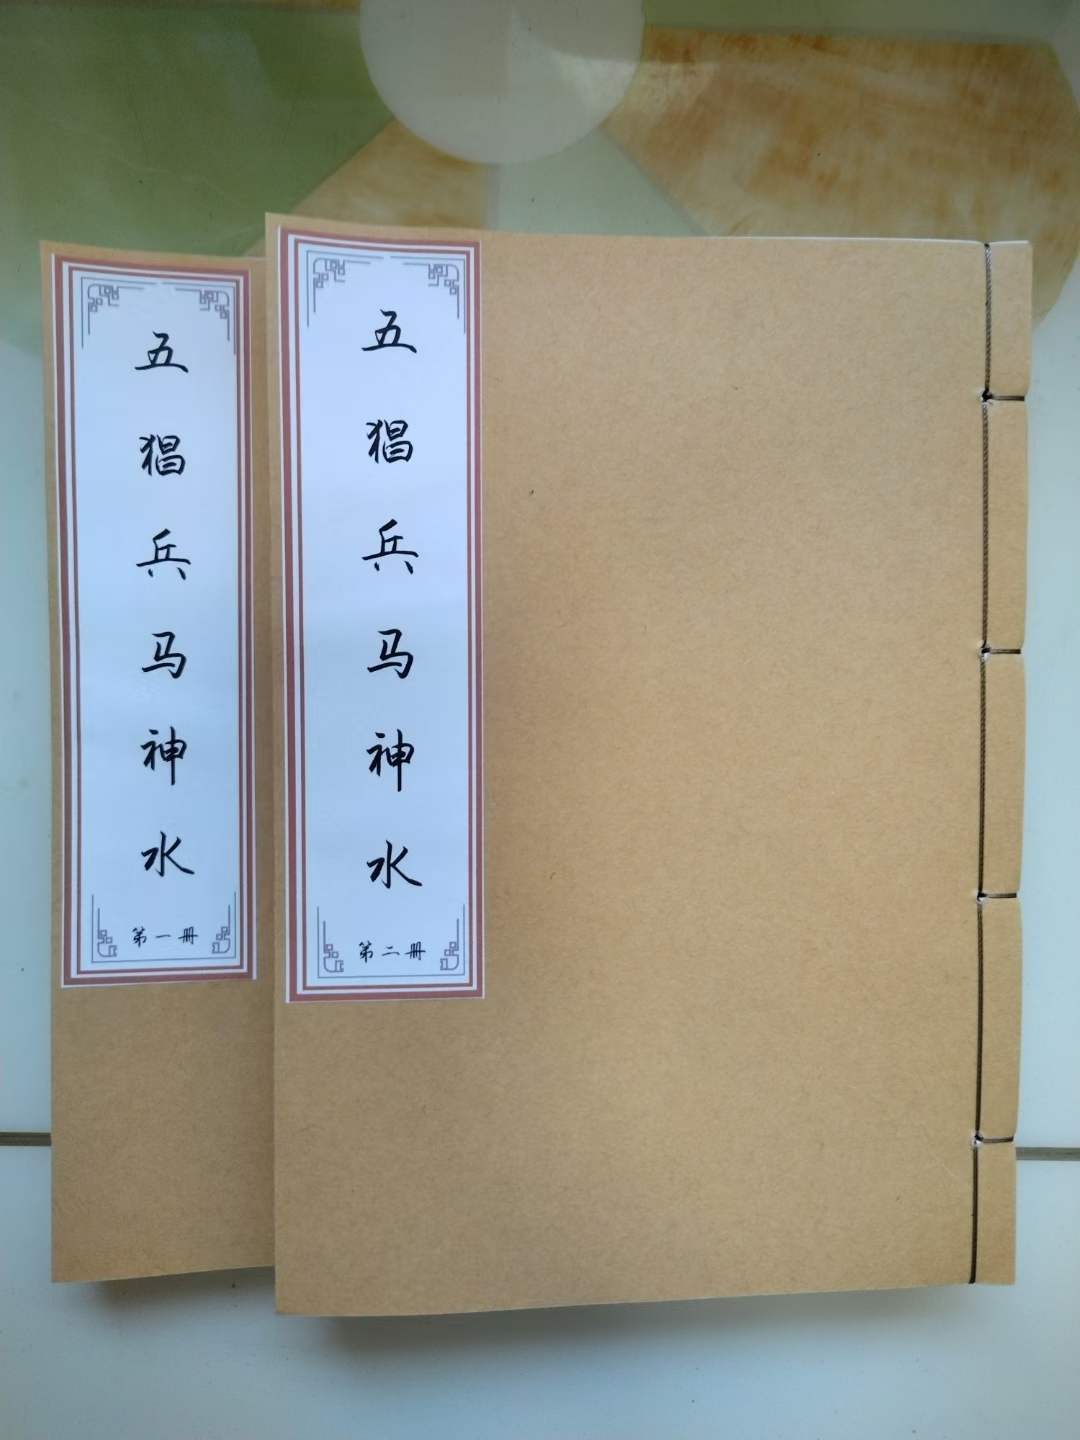 五猖兵马神水
第一册
五猖兵马神水
第二册